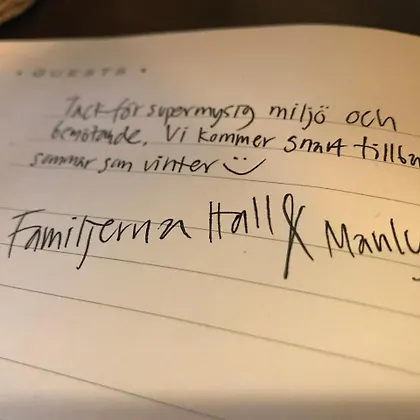 • GUESTS •
Tack för supermysig miljö och
bemötande. Vi kommer snart tillba
sommar som vinter :)
Familjerna Hall & Manly